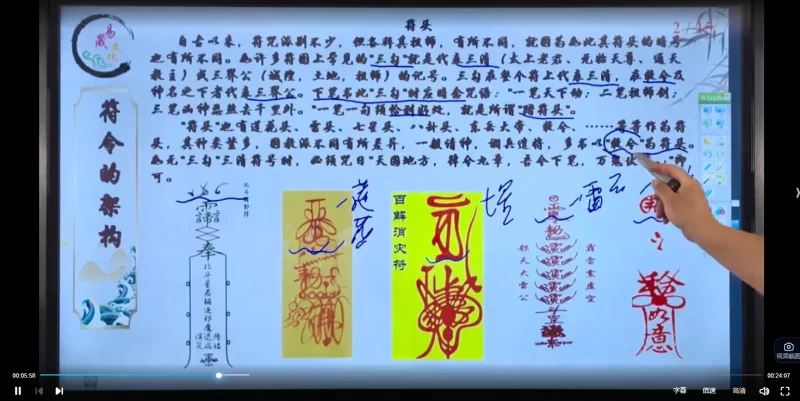 符头
2
自古以来，符咒派别不少，但各拜其祖师，有所不同，就因为如此其符头的暗号
也有所不同。如许多符图上常见的"三勾"就是代表三清（太上老君、元始天尊、通天
教主）或三界公（城隍，土地，祖师）的记号。三勾在整个符上代表三清，在敕令及
神名之下者代表三界公。下笔书此"三勾"时应暗念咒语："一笔天下动；二笔祖师剑；
三笔凶神恶煞去千里外。"一笔一勾须恰到好处，就是所谓"踏符头"。
"符头"也有道花头、雷头、七星头、八卦头、东岳大帝、敕令、……等等作为符
头，其种类繁多，因教派不同有所差异，一般请神，调兵遣将，多书以"敕令"为符头。
如无"三勾"三清符号时，必须咒曰"天圆地方，律令九章，吾今下笔，万鬼伏
可。
易
晟
文化
符令的架构
WhiteBoard
百解消灾符
奉
北斗星君
都天大雷公
霹雷
虚空
如意
00:05:58
00:24:07
字幕
倍速
高清
视频截图